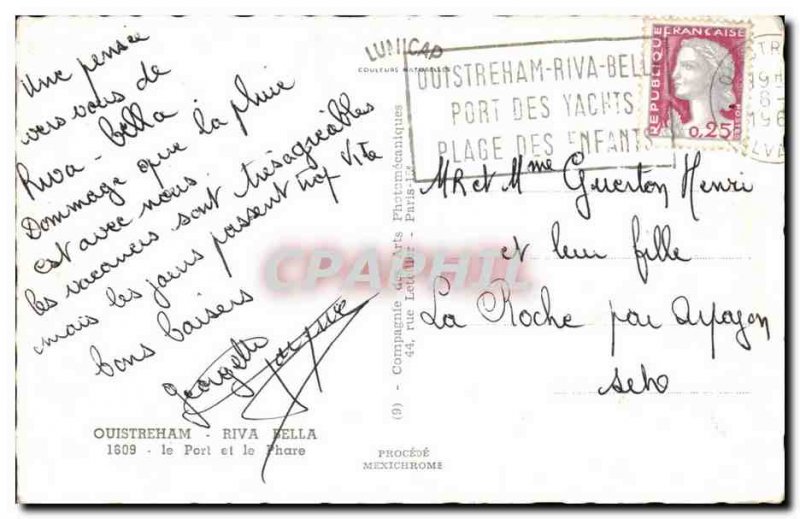 Une pensée
vers vous de
Riva - Bella.
Dommage que la pluie
est avec nous.
les vacances sont très agréables
mais les jours passent trop vite
bons baisers
Georgette
OUISTREHAM - RIVA BELLA
1609 - le Port et le Phare
LUMICAP
COULEURS NATURELLES
(9) - Compagnie des Arts Photomécaniques
44, rue Letellier - Paris-
PROCÉDÉ
MEXICHROME
OUISTREHAM-RIVA-BELL
PORT DES YACHTS
PLAGE DES ENFANTS
REPUBLIQUE FRANCAISE
0,25
19H
8-
196
MR et Mme Guerton Henri
et leur fille
La Roche par Arpajon
S et O
CPAPHIL